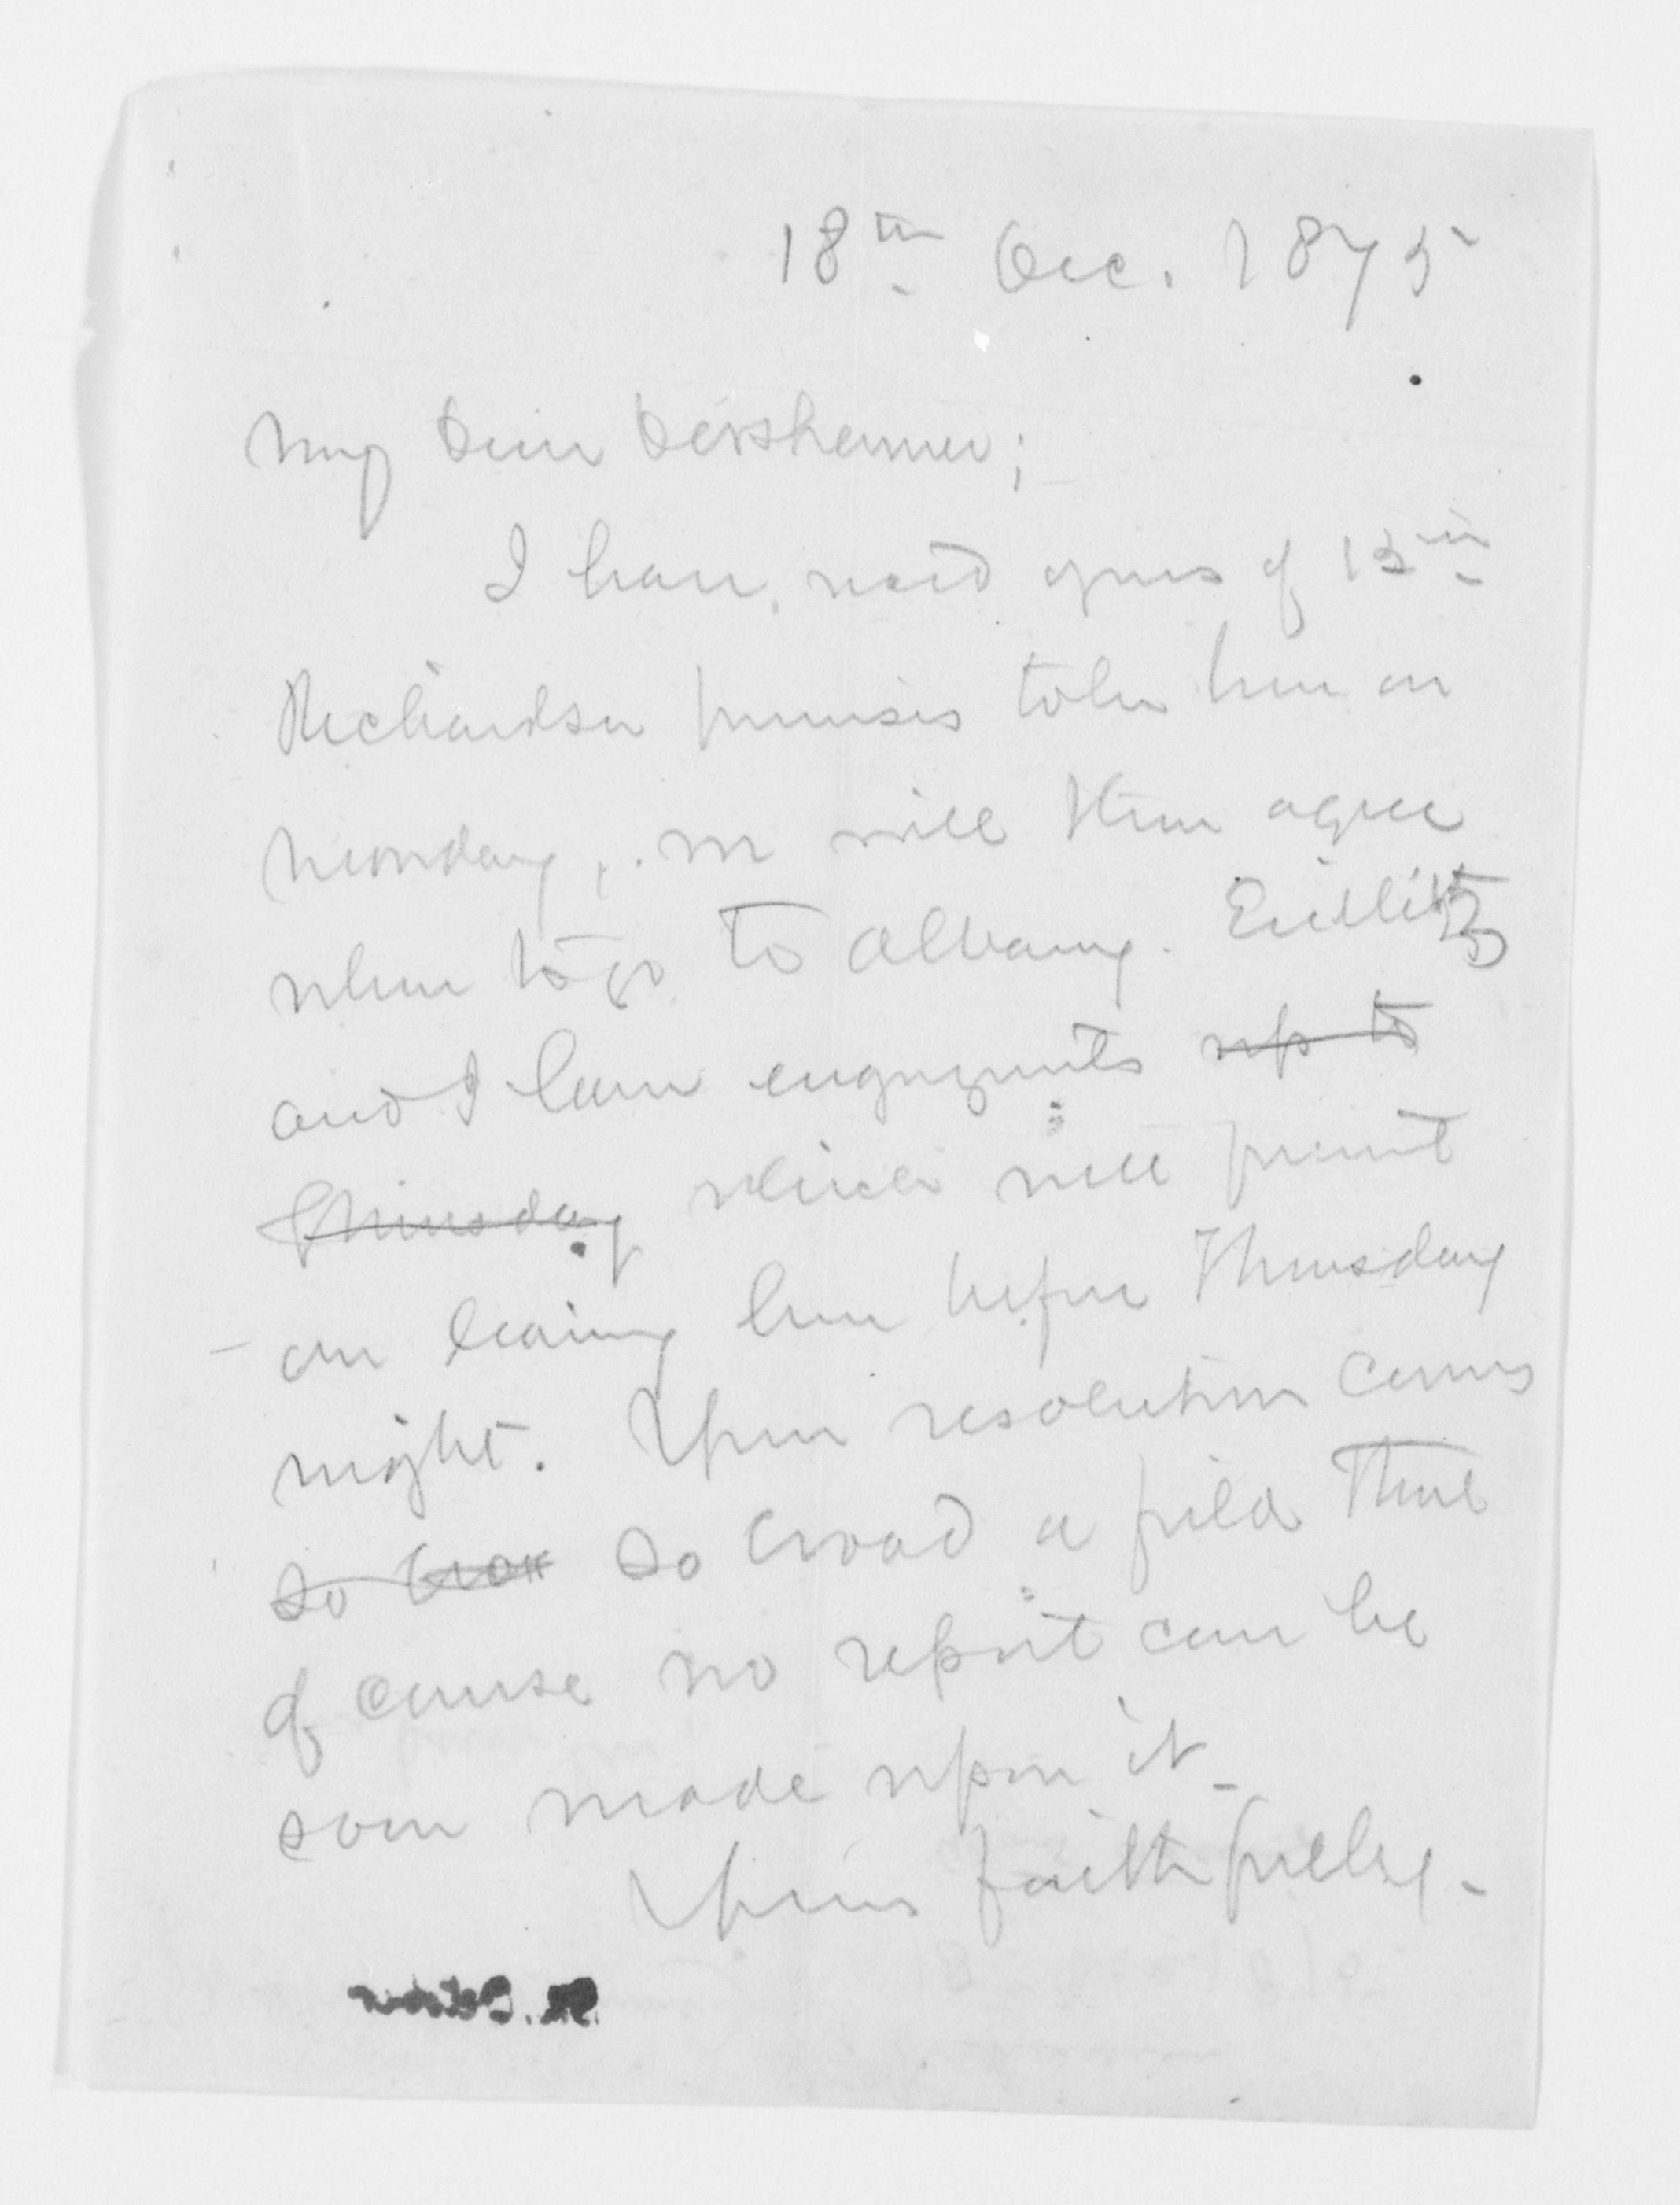 18th Dec. 1875
My Dear Dorsheimer;
I have rec'd yours of 15th
Richardson promises to be here on
Monday, we will then agree
when to go to Albany. Eidlitz
and I have engagements up to
Thursday which will prevent
our leaving here before Thursday
night. Your resolution covers
so broa so broad a field that
of course no report can be
soon made upon it.
Yours faithfully.